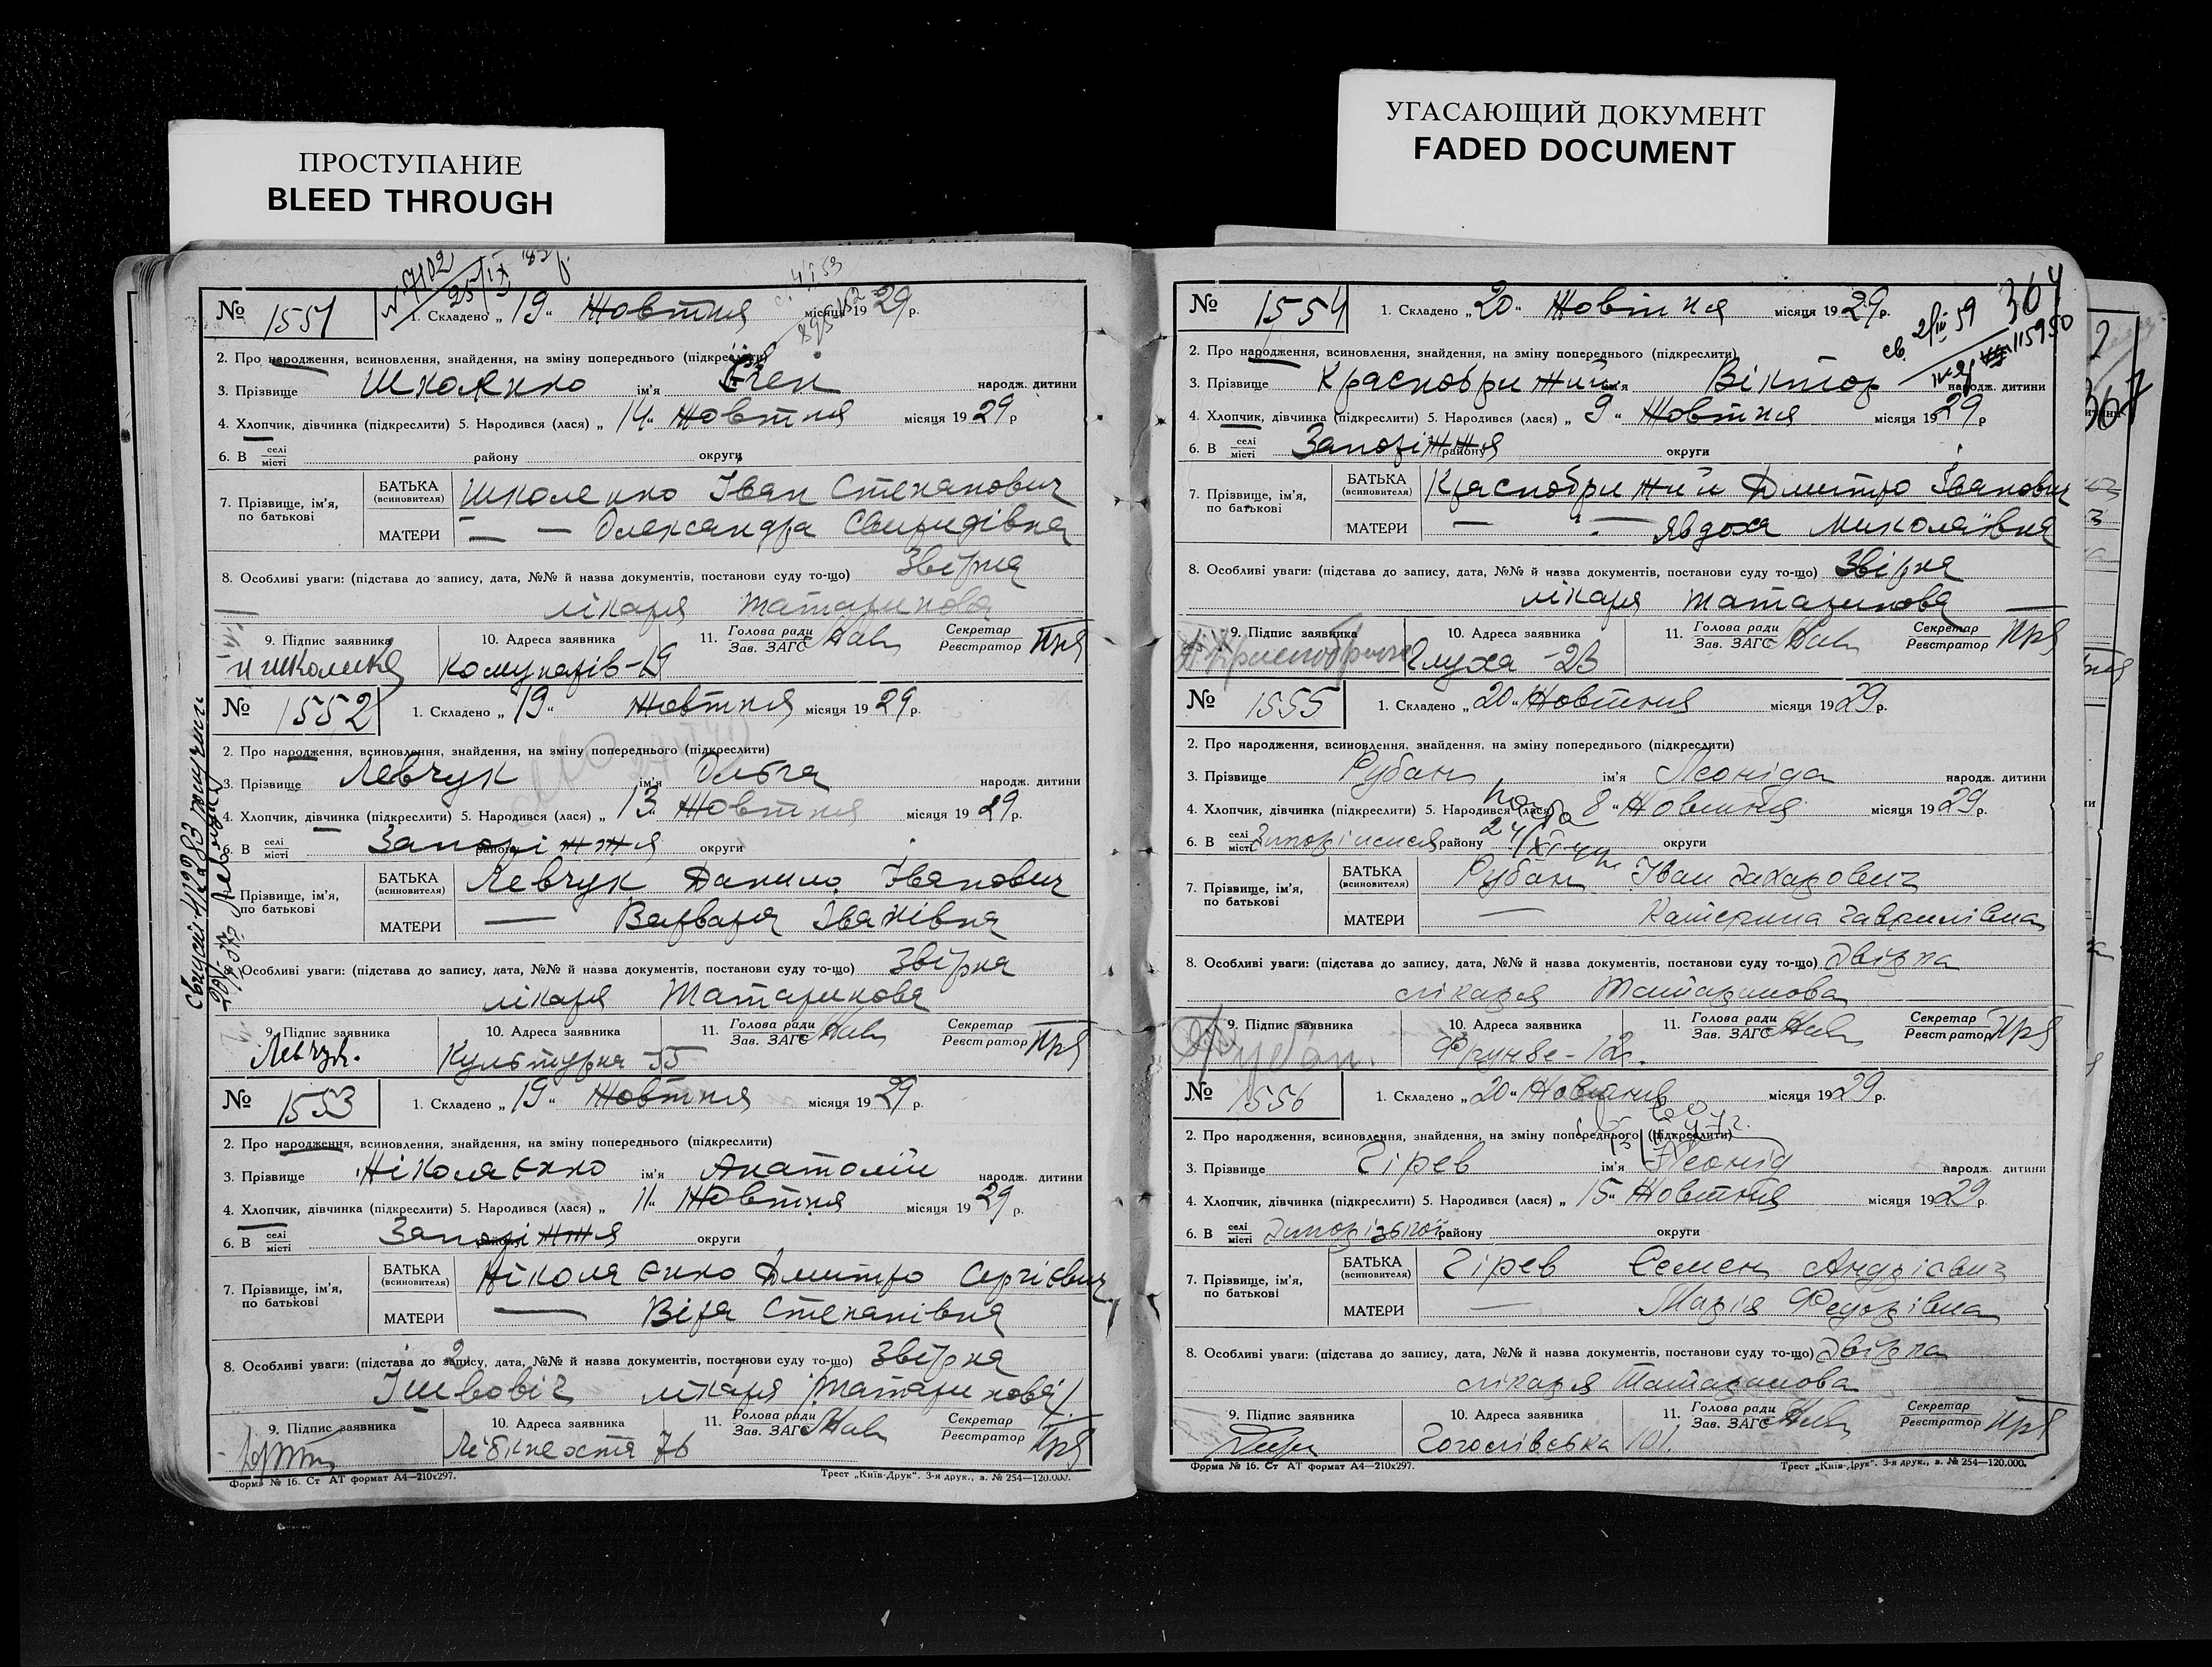 ПРОСТУПАНИЕ
BLEED THROUGH
УГАСАЮЩИЙ ДОКУМЕНТ
FADED DOCUMENT
№ 7102
25/IX
№ 1551 1. Складено „ 19 “ Жовтня місяця 1929 р.
2. Про народження, всиновлення, знайдення, на зміну попереднього (підкреслити)
3. Прізвище Школенко ім'я народж. дитини
4. Хлопчик, дівчинка (підкреслити) 5. Народився (лася) „ 14 “ Жовтня місяця 1929 р
6. В селі місті району округи
7. Прізвище, ім'я, по батькові
БАТЬКА (всиновителя) Школенко Іван Степанович
МАТЕРИ — — Олександра Свиридівна
8. Особливі уваги: (підстава до запису, дата, №№ й назва документів, постанови суду то-що) Звірка
лікаря Татаринова
9. Підпис заявника 10. Адреса заявника 11. Голова ради Зав. ЗАГС Секретар Реєстратор
Комунарів-19
№ 1552 1. Складено „ 19 “ Жовтня місяця 1929 р.
2. Про народження, всиновлення, знайдення, на зміну попереднього (підкреслити)
3. Прізвище Левчук ім'я Ольга народж. дитини
4. Хлопчик, дівчинка (підкреслити) 5. Народився (лася) „ 13 “ Жовтня місяця 1929 р.
6. В селі місті Запоріжжя району округи
7. Прізвище, ім'я, по батькові
БАТЬКА (всиновителя) Левчук Данило Іванович
МАТЕРИ — Варвара Іванівна
8. Особливі уваги: (підстава до запису, дата, №№ й назва документів, постанови суду то-що) Звірка
лікаря Татаринова
9. Підпис заявника 10. Адреса заявника 11. Голова ради Зав. ЗАГС Секретар Реєстратор
Левчук. Культурна 55
№ 1553 1. Складено „ 19 “ Жовтня місяця 1929 р.
2. Про народження, всиновлення, знайдення, на зміну попереднього (підкреслити)
3. Прізвище Ніколаєнко ім'я Анатолій народж. дитини
4. Хлопчик, дівчинка (підкреслити) 5. Народився (лася) „ 11 “ Жовтня місяця 1929 р.
6. В селі місті Запоріжжя району округи
7. Прізвище, ім'я, по батькові
БАТЬКА (всиновителя) Ніколаєнко Дмитро Сергієвич
МАТЕРИ — Віра Степанівна
8. Особливі уваги: (підстава до запису, дата, №№ й назва документів, постанови суду то-що) Звірка
лікаря Татаринова
9. Підпис заявника 10. Адреса заявника 11. Голова ради Зав. ЗАГС Секретар Реєстратор
Лібкнехта 76
Форма № 16. Ст АТ формат А4—210х297. Трест „Київ-Друк“. 3-я друк., з. № 254—120.000.
364
№ 1554 1. Складено „ 20 “ Жовтня місяця 1929 р.
2. Про народження, всиновлення, знайдення, на зміну попереднього (підкреслити)
3. Прізвище Краснобрижий ім'я Віктор народж. дитини
4. Хлопчик, дівчинка (підкреслити) 5. Народився (лася) „ 9 “ Жовтня місяця 1929 р
6. В селі місті Запоріжжя району округи
7. Прізвище, ім'я, по батькові
БАТЬКА (всиновителя) Краснобрижий Дмитро Іванович
МАТЕРИ — — Явдоха Миколаївна
8. Особливі уваги: (підстава до запису, дата, №№ й назва документів, постанови суду то-що) Звірка
лікаря Татаринова —
9. Підпис заявника 10. Адреса заявника 11. Голова ради Зав. ЗАГС Секретар Реєстратор
Глуха - 23
№ 1555 1. Складено „ 20 “ Жовтня місяця 1929 р.
2. Про народження, всиновлення, знайдення, на зміну попереднього (підкреслити)
3. Прізвище Рубан ім'я Леоніда народж. дитини
4. Хлопчик, дівчинка (підкреслити) 5. Народився (лася) 8 “ Жовтня місяця 1929 р.
6. В селі місті Запоріжжя району округи
7. Прізвище, ім'я, по батькові
БАТЬКА (всиновителя) Рубан Іван Захарович
МАТЕРИ — Катерина Гаврилівна
8. Особливі уваги: (підстава до запису, дата, №№ й назва документів, постанови суду то-що) Звірка
лікаря Татаринова
9. Підпис заявника 10. Адреса заявника 11. Голова ради Зав. ЗАГС Секретар Реєстратор
Рубан. Фрунзе - 12.
№ 1556 1. Складено „ 20 “ Жовтня місяця 1929 р.
2. Про народження, всиновлення, знайдення, на зміну попереднього (підкреслити)
3. Прізвище Гірев ім'я Леонід народж. дитини
4. Хлопчик, дівчинка (підкреслити) 5. Народився (лася) „ 15 “ Жовтня місяця 1929 р.
6. В селі місті Запорізької району округи
7. Прізвище, ім'я, по батькові
БАТЬКА (всиновителя) Гірев Семен Андрієвич
МАТЕРИ — Марія Федорівна
8. Особливі уваги: (підстава до запису, дата, №№ й назва документів, постанови суду то-що) Звірка
лікаря Татаринова
9. Підпис заявника 10. Адреса заявника 11. Голова ради Зав. ЗАГС Секретар Реєстратор
101.
Форма № 16. Ст АТ формат А4—210х297. Трест „Київ-Друк“. 3-я друк., з. № 254—120.000.
367